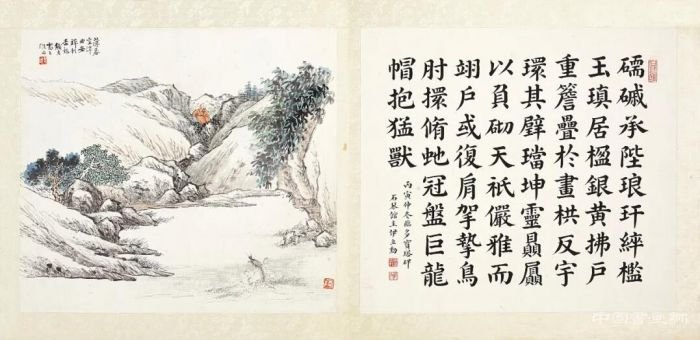 碝磩承陛琅玕綷檻
玉瑱居楹銀黄拂户
重簷疊於畫栱反宇
環其璧璫坤靈贔屭
以負砌天祇儼雅而
翊户或復肩挐摯鳥
肘擐脩虵冠盤巨龍
帽抱猛獸
丙寅仲冬臨多寶塔碑
石琴館主伊立勛